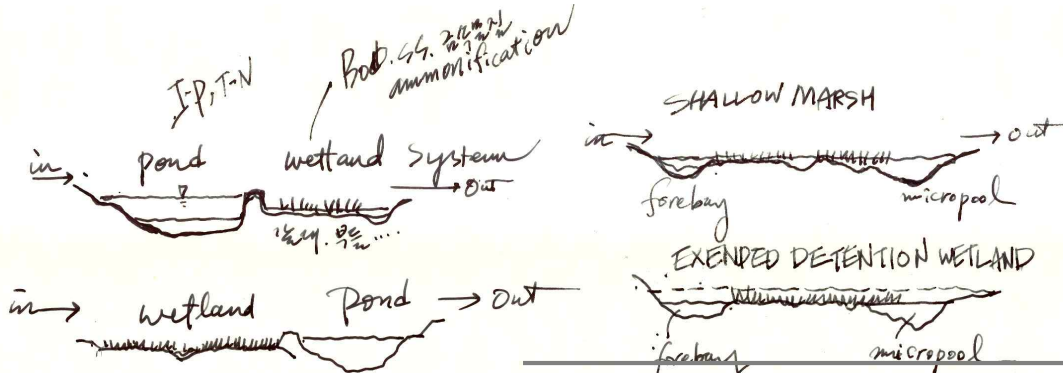 T-P, T-N
BOD. SS.
ammonification
in
pond
wetland system
out
in
wetland
pond
out
SHALLOW MARSH
in
out
forebay
micropool
EXENDED DETENTION WETLAND
forebay
micropool